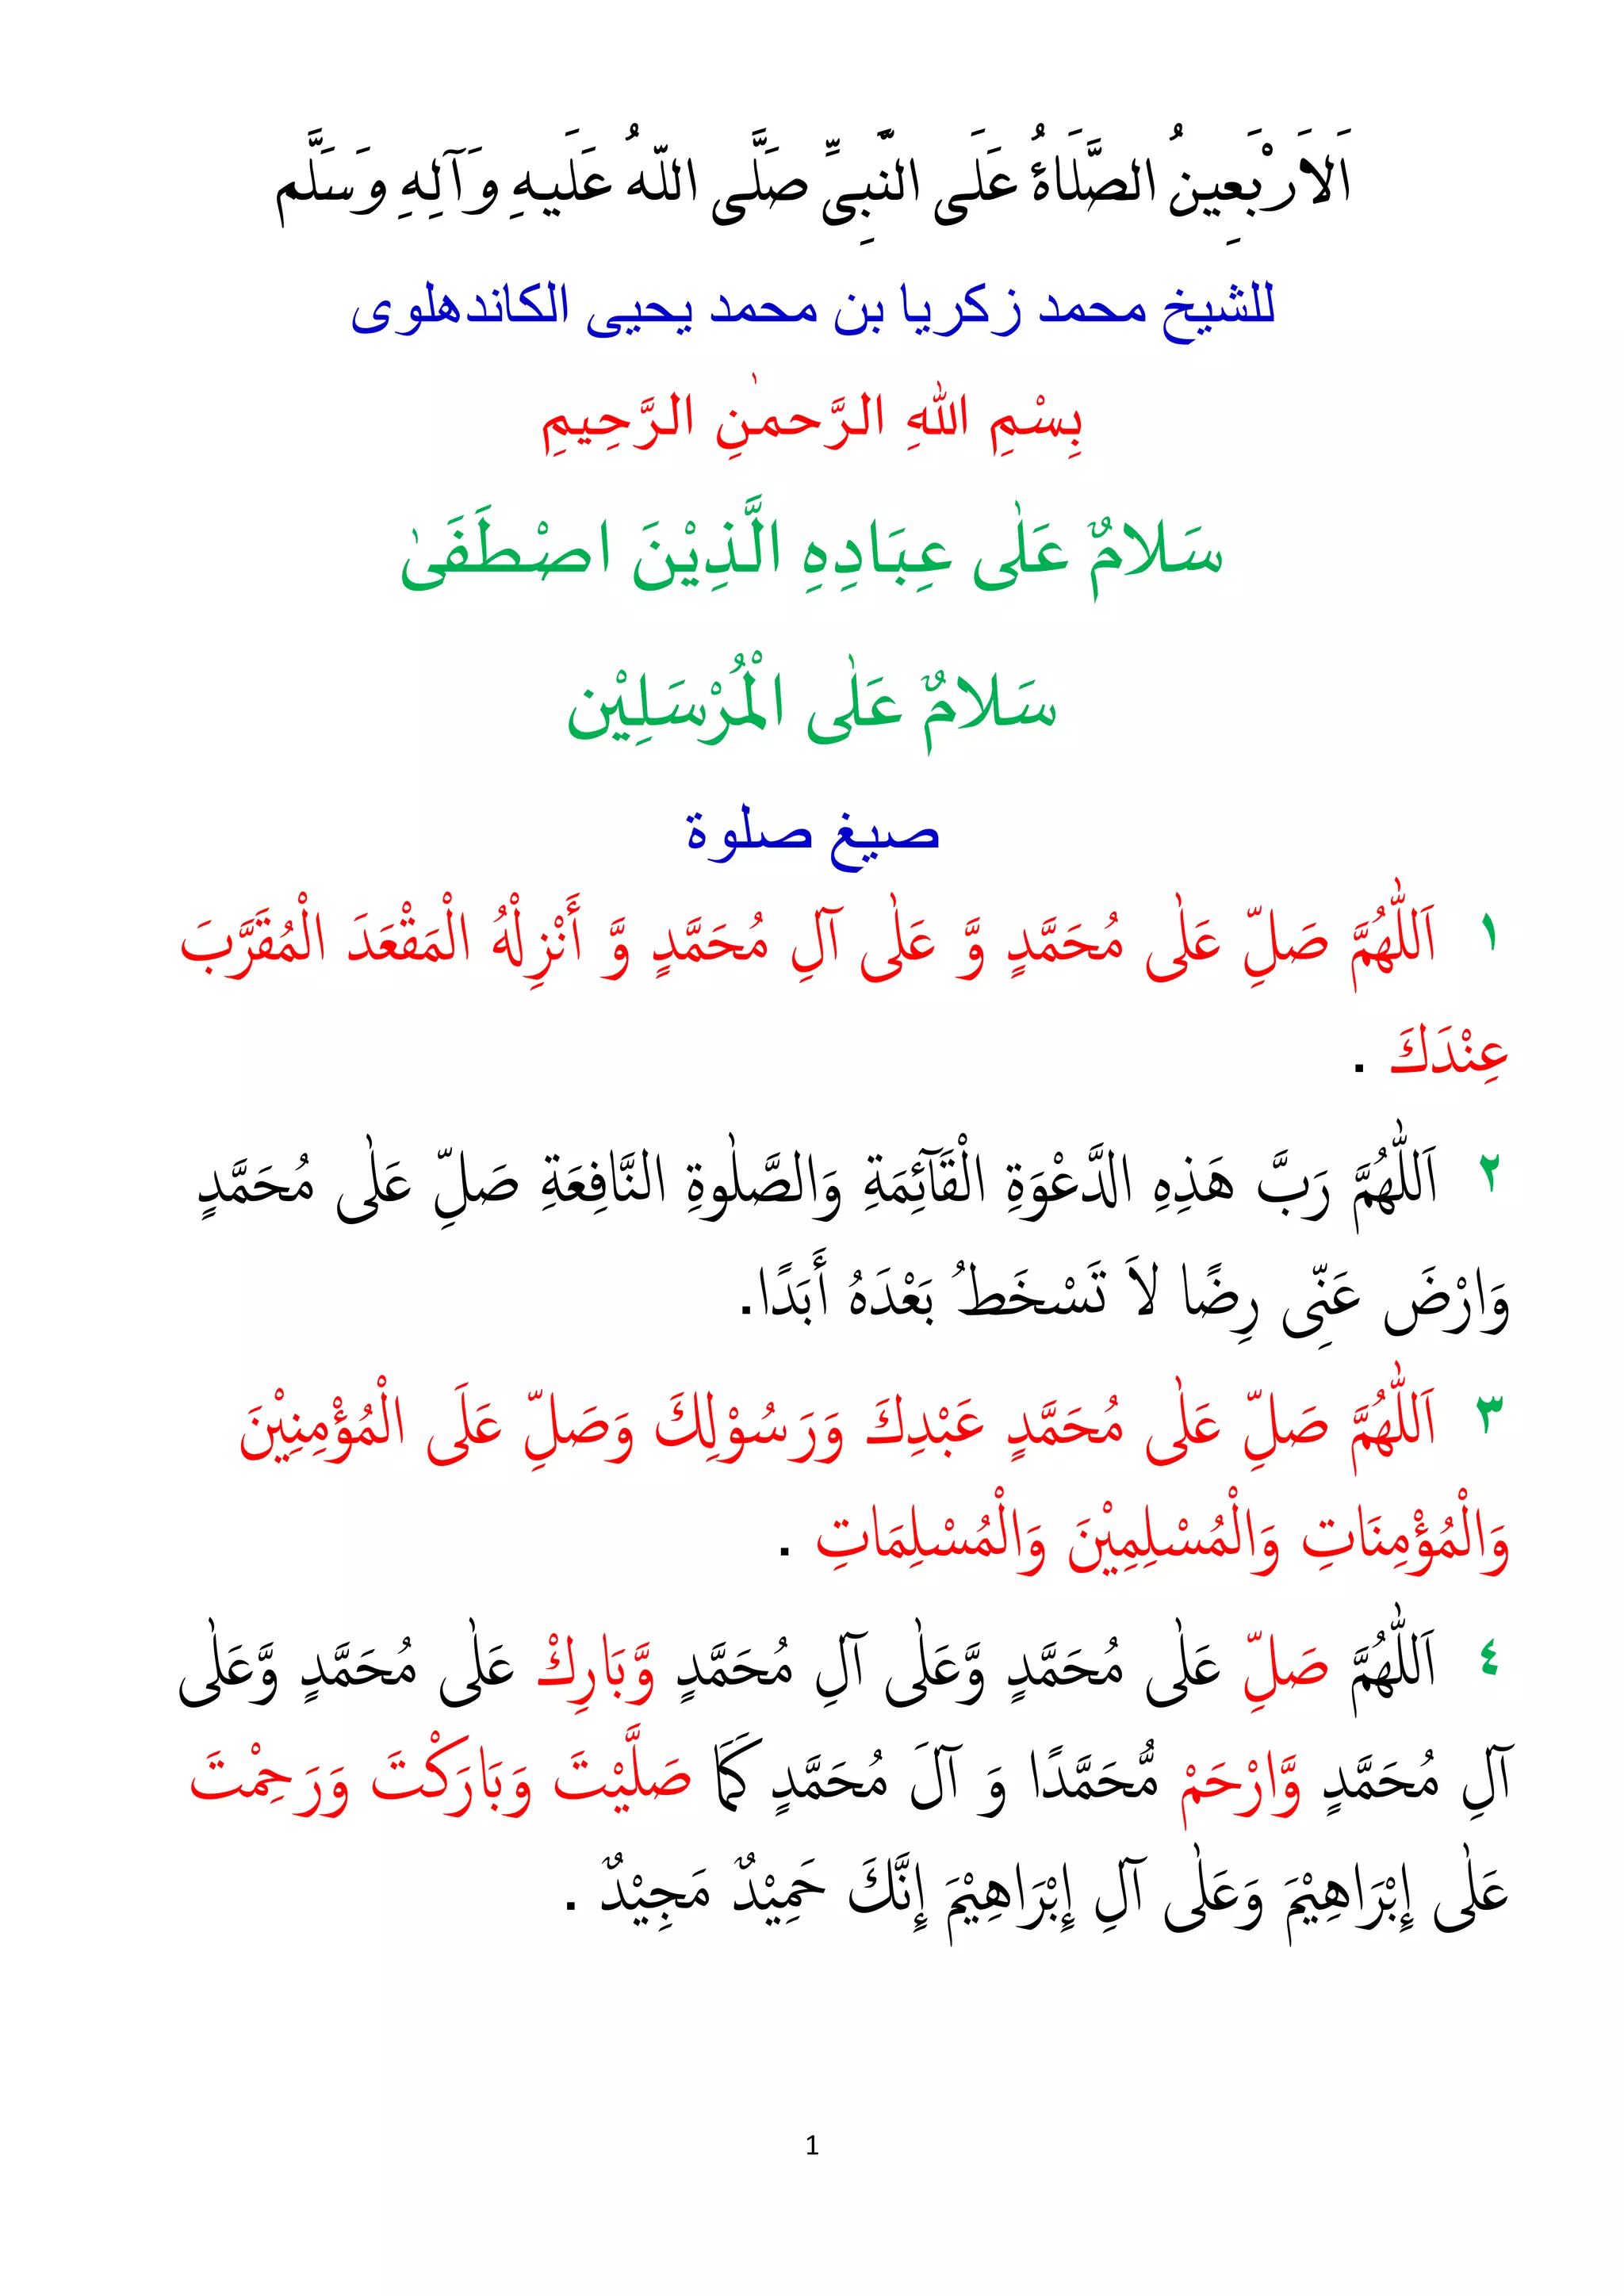 اَلاَرَبْعِينُ الصَّلَاةُ عَلَى النَّبِىِّ صَلَّى اللّهُ عَلَيهِ وَآلِهِ وَسَلَّم
للشيخ محمد زكريا بن محمد يحيى الكاندهلوى
بِسْمِ اللهِ الرَّحمٰنِ الرَّحِيمِ
سَلامٌ عَلٰى عِبَادِهِ الَّذِيْنَ اصْطَفَىٰ
سَلامٌ عَلٰى الْمُرْسَلِيْن
صيغ صلوة
١ اَللّٰهُمَّ صَلِّ عَلٰى مُحَمَّدٍ وَّ عَلٰى آلِ مُحَمَّدٍ وَّ أَنْزِلْهُ الْمَقْعَدَ الْمُقَرَّبَ
عِنْدَكَ .
٢ اَللّٰهُمَّ رَبَّ هَذِهِ الدَّعْوَةِ الْقَآئِمَةِ وَالصَّلٰوةِ النَّافِعَةِ صَلِّ عَلٰى مُحَمَّدٍ
وَارْضَ عَنِّى رِضًا لاَ تَسْخَطُ بَعْدَهُ أَبَدًا.
٣ اَللّٰهُمَّ صَلِّ عَلٰى مُحَمَّدٍ عَبْدِكَ وَرَسُوْلِكَ وَصَلِّ عَلَى الْمُؤْمِنِيْنَ
وَالْمُؤْمِنَاتِ وَالْمُسْلِمِيْنَ وَالْمُسْلِمَاتِ .
٤ اَللّٰهُمَّ صَلِّ عَلٰى مُحَمَّدٍ وَّعَلٰى آلِ مُحَمَّدٍ وَّبَارِكْ عَلٰى مُحَمَّدٍ وَّعَلٰى
آلِ مُحَمَّدٍ وَّارْحَمْ مُّحَمَّدًا وَ آلَ مُحَمَّدٍ كَمَا صَلَّيْتَ وَبَارَكْتَ وَرَحِمْتَ
عَلٰى إِبْرَاهِيْمَ وَعَلٰى آلِ إِبْرَاهِيْمَ إِنَّكَ حَمِيْدٌ مَجِيْدٌ .
1